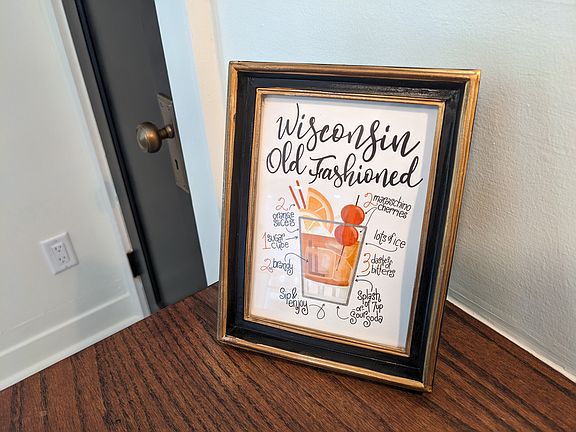 Wisconsin
Old Fashioned
2
orange
slices
1 sugar
cube
2 brandy
Sip &
enjoy
2 maraschino
cherries
lots of ice
3 dashes
bitters
Splash
of 7up
or
Sour soda